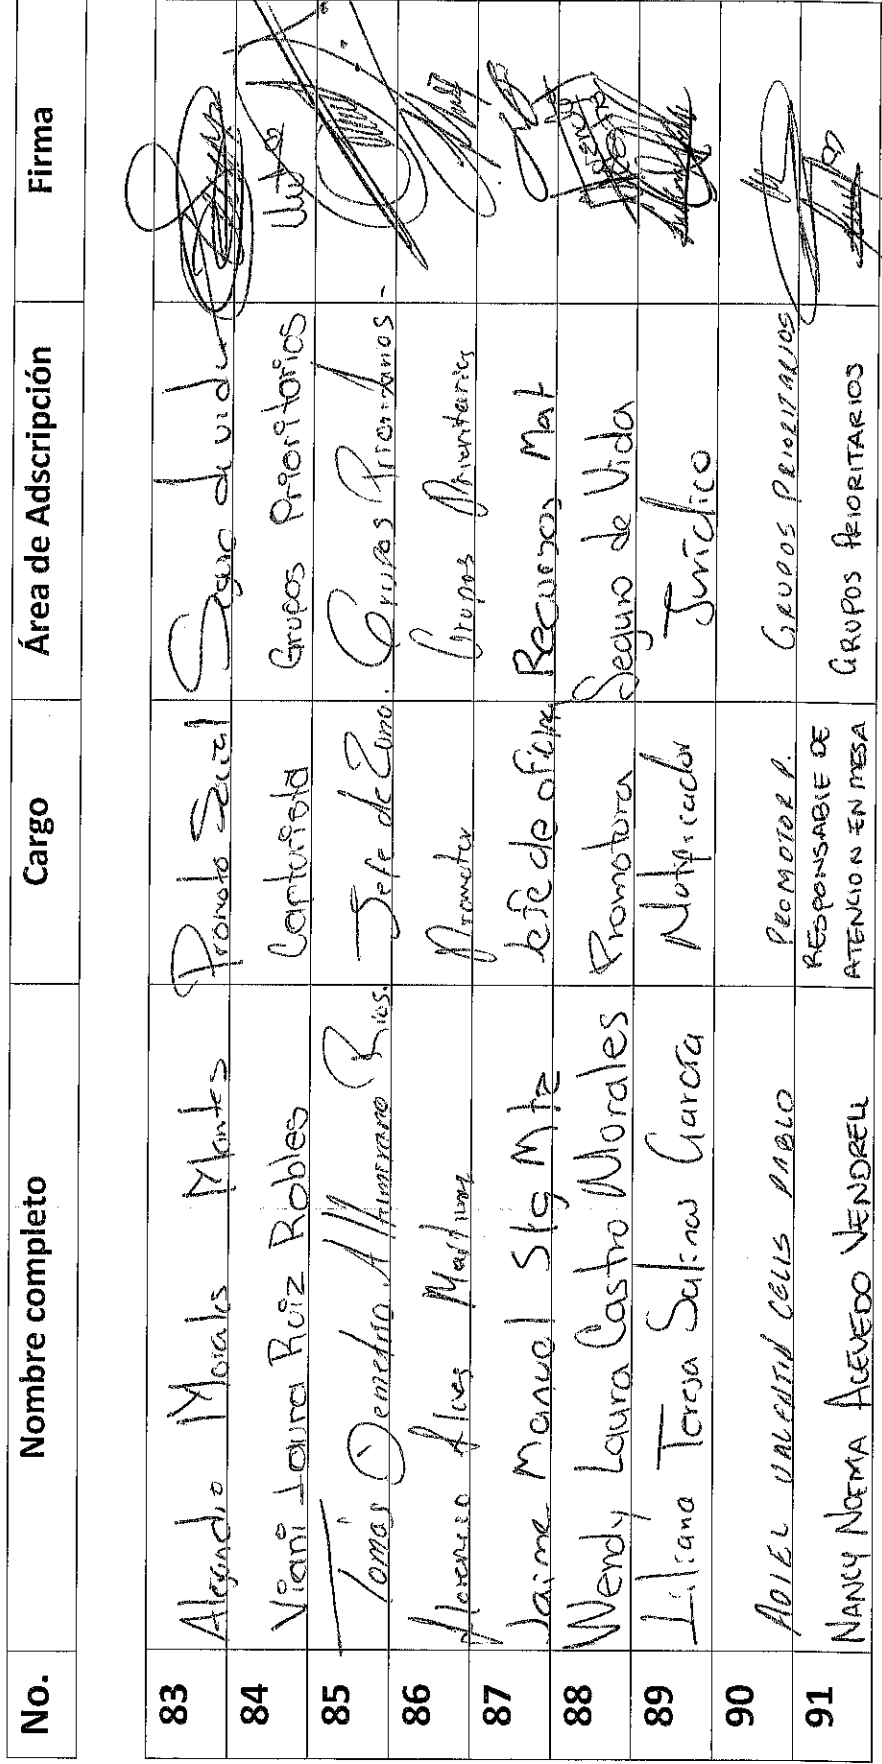 No. Nombre completo Cargo Área de Adscripción Firma
83 Alejandro Morales Montes Promoto Social Seguro de vida
84 Viani Laura Ruiz Robles Capturista Grupos Prioritarios
85 Tomás Demetrio Altamirano Rios. Jefe de Zona. Grupos Prioritarios -
86 Florencio Alves Martinez Promotor Grupos Prioritarios
87 Jaime Manuel Stg Mtz Jefe de ofi Recursos Mat
88 Wendy Laura Castro Morales Promotora Seguro de Vida WENDY CASTRO
89 Liliana Teresa Salinas García Notificador Jurídico
90 ADIEL VALENTIN CELIS PABLO PROMOTOR P. GRUPOS PRIORITARIOS
91 NANCY NOEMA ACEVEDO VENDRELL RESPONSABLE DE
ATENCION EN MESA GRUPOS PRIORITARIOS